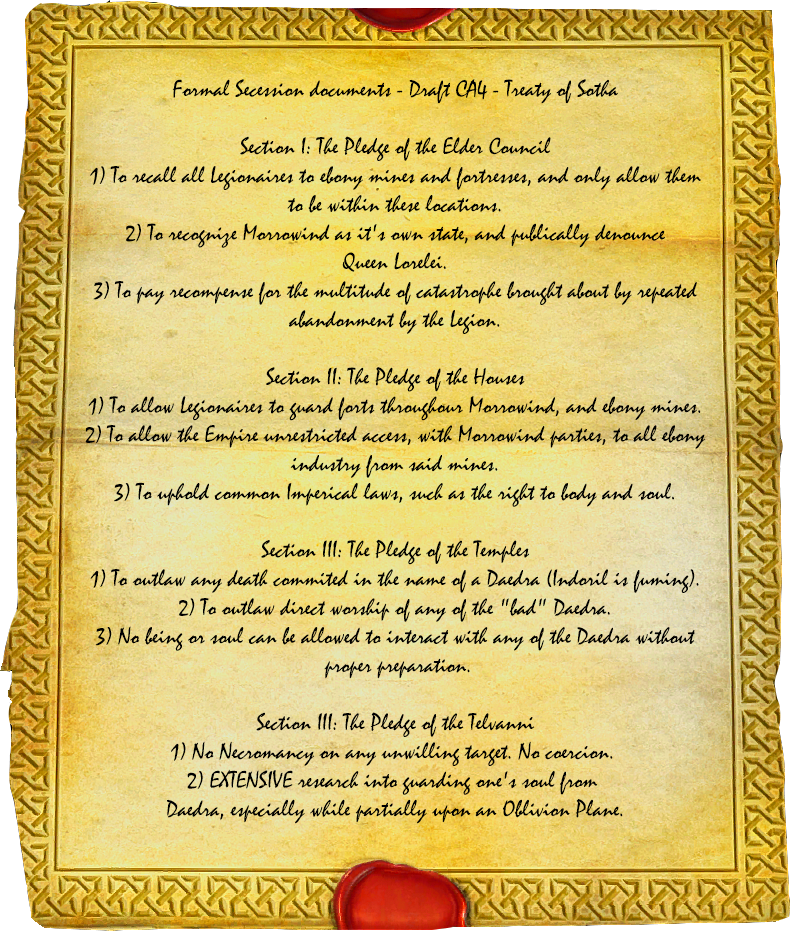 Formal Secession documents - Draft CA4 - Treaty of Sotha
Section I: The Pledge of the Elder Council
1) To recall all Legionaires to ebony mines and fortresses, and only allow them
to be within these locations.
2) To recognize Morrowind as it's own state, and publically denounce
Queen Lorelei.
3) To pay recompense for the multitude of catastrophe brought about by repeated
abandonment by the Legion.
Section II: The Pledge of the Houses
1) To allow Legionaires to guard forts throughour Morrowind, and ebony mines.
2) To allow the Empire unrestricted access, with Morrowind parties, to all ebony
industry from said mines.
3) To uphold common Imperical laws, such as the right to body and soul.
Section III: The Pledge of the Temples
1) To outlaw any death commited in the name of a Daedra (Indoril is fuming).
2) To outlaw direct worship of any of the "bad" Daedra.
3) No being or soul can be allowed to interact with any of the Daedra without
proper preparation.
Section III: The Pledge of the Telvanni
1) No Necromancy on any unwilling target. No coercion.
2) EXTENSIVE research into guarding one's soul from
Daedra, especially while partially upon an Oblivion Plane.